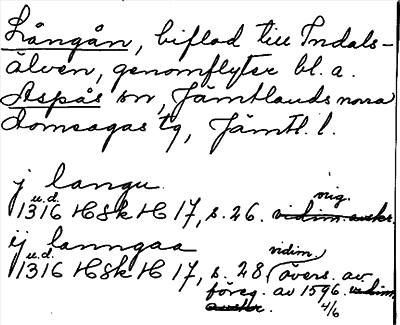 Långån, biflod till Indals-
älven, genomflyter bl. a.
Aspås sn, Jämtlands norra
domsagas tg, Jämtl. l.
j langu
orig.
1316 u.d. HSkH 17, s. 26. vidim. avskr.
ij lanngaa
vidim.
1316 u.d. HSkH 17, s. 28 (övers. av
föreg. av 1596. vidim.
avskr. 4/6